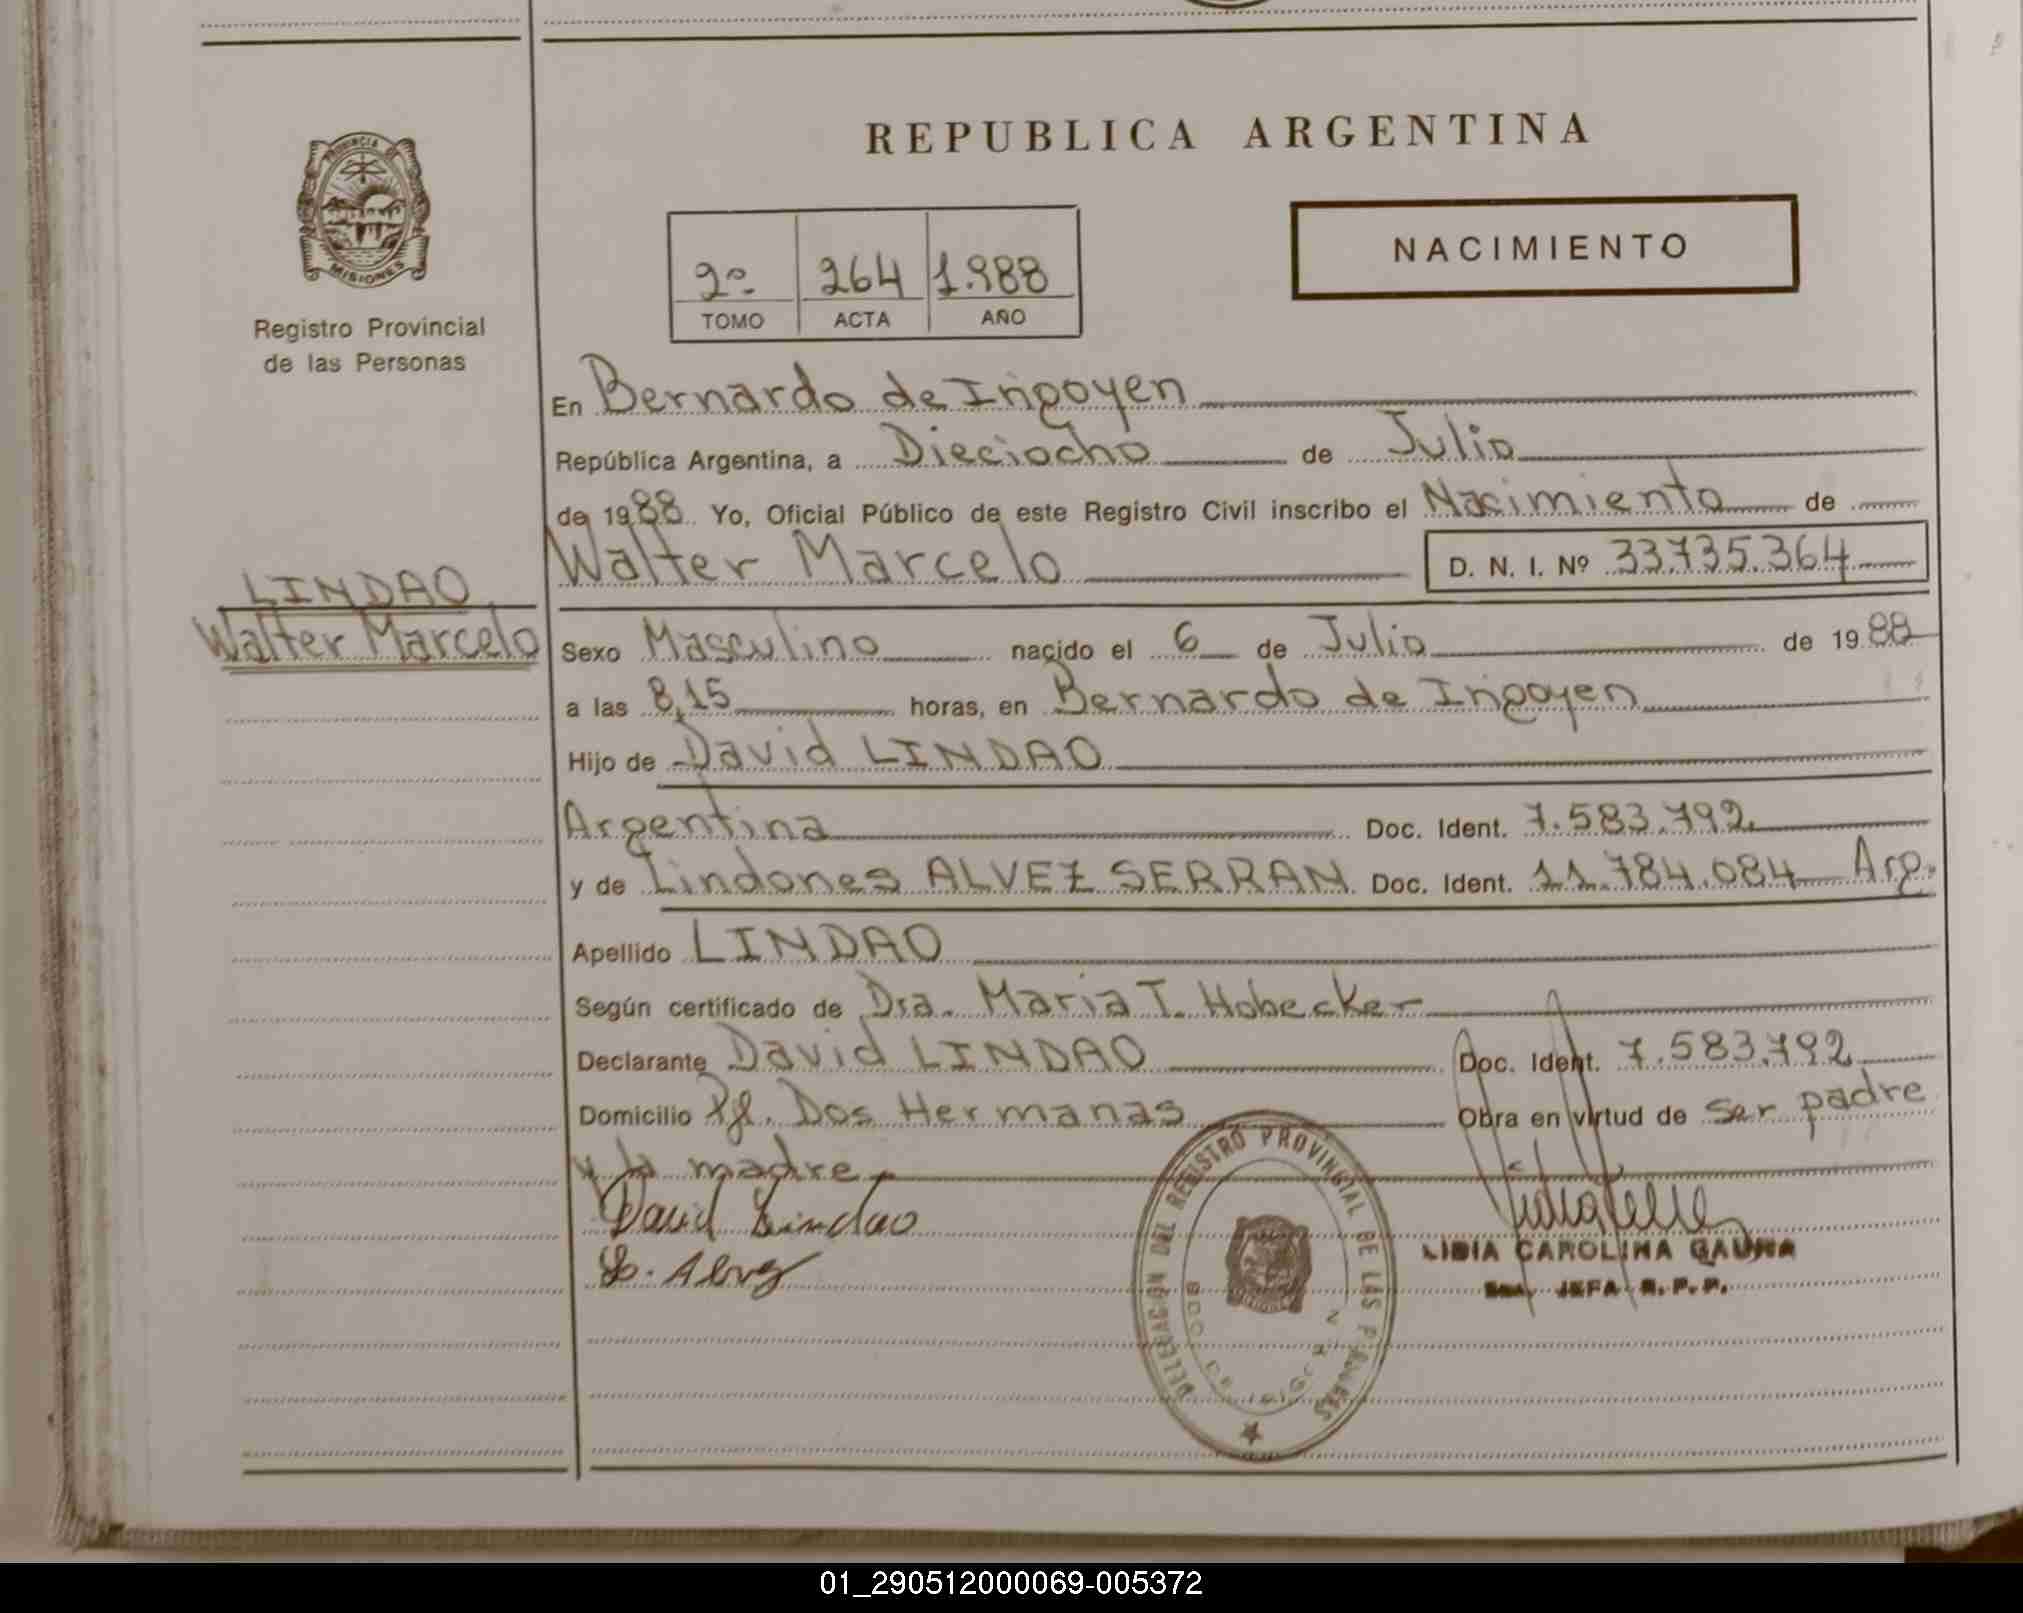 REPUBLICA ARGENTINA
PROVINCIA DE
MISIONES
Registro Provincial
de las Personas
NACIMIENTO
2º 264 1.988
TOMO ACTA AÑO
En Bernardo de Irigoyen
República Argentina, a Dieciocho de Julio
de 1988 Yo, Oficial Público de este Registro Civil inscribo el Nacimiento de
Walter Marcelo D. N. I. Nº 33.735.364
LINDAO
Walter Marcelo
Sexo Masculino nacido el 6 de Julio de 1988
a las 8,15 horas, en Bernardo de Irigoyen
Hijo de David LINDAO
Argentina Doc. Ident. 7.583.792
y de Lindones ALVEZ SERRAN Doc. Ident. 11.784.084 Arg.
Apellido LINDAO
Según certificado de Dra. Maria T. Hobecker
Declarante David LINDAO Doc. Ident. 7.583.792
Domicilio Pje. Dos Hermanas Obra en virtud de ser padre
y la madre
David Lindao
L. Alvez
DELEGACION DEL REGISTRO PROVINCIAL DE LAS PERSONAS
BDO. DE IRIGOYEN
LIDIA CAROLINA GAUNA
JEFA R. P. P.
01_290512000069-005372